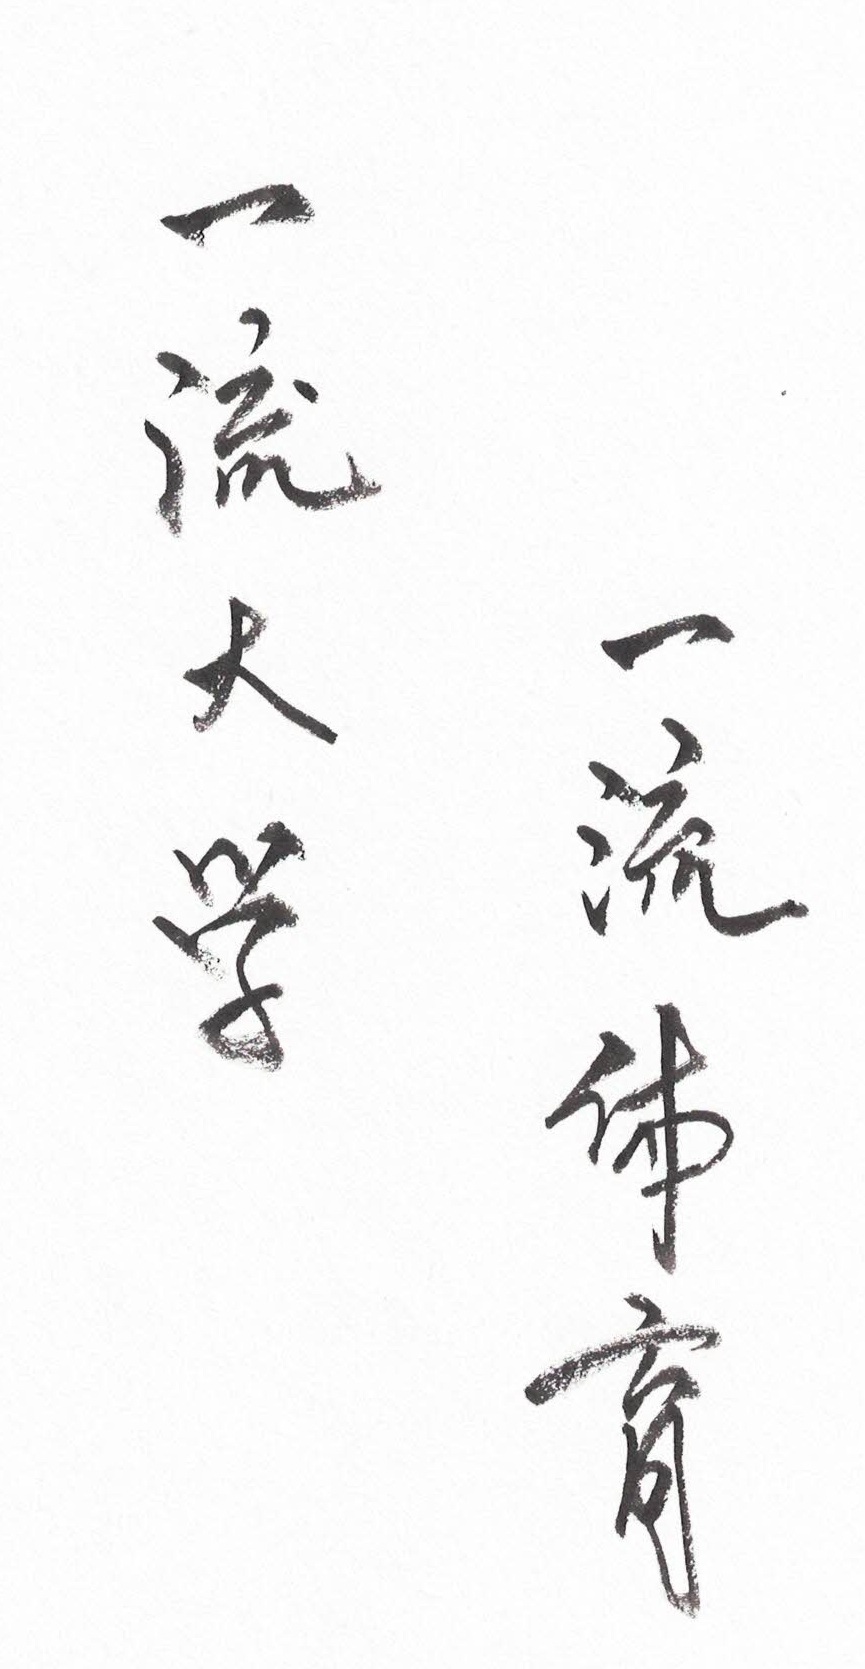 一流大学
一流体育